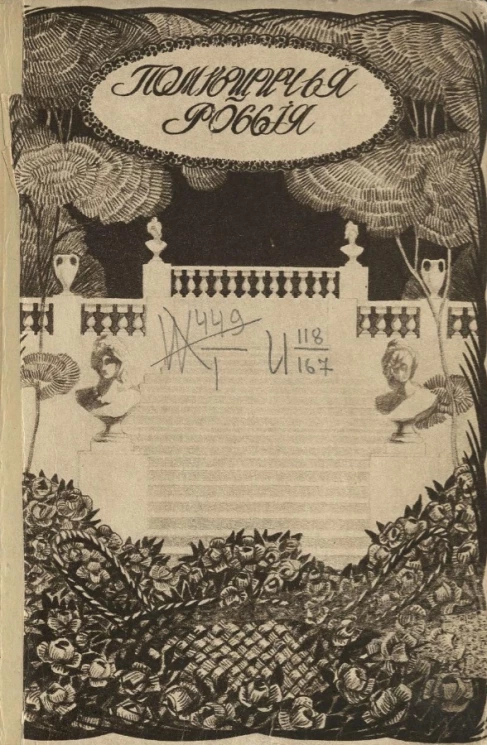 ПОМѢЩИЧЬЯ
РОССІЯ
Ж 449/1
И 118/167